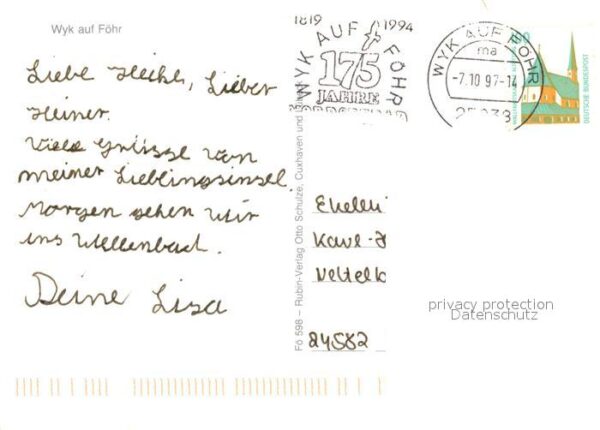 Wyk auf Föhr
Liebe Heike, Lieber
Heiner.
Viele Grüsse von
meiner Lieblingsinsel.
Morgen gehen wir
ins Wellenbad.
Deine Lisa
1819 1994
WYK AUF FÖHR
175
JAHRE
WYK AUF FÖHR
ma
-7.10 97-14
25938
DEUTSCHE BUNDESPOST
Fö 598 – Rubin-Verlag Otto Schulze, Cuxhaven und
24582
privacy protection
Datenschutz